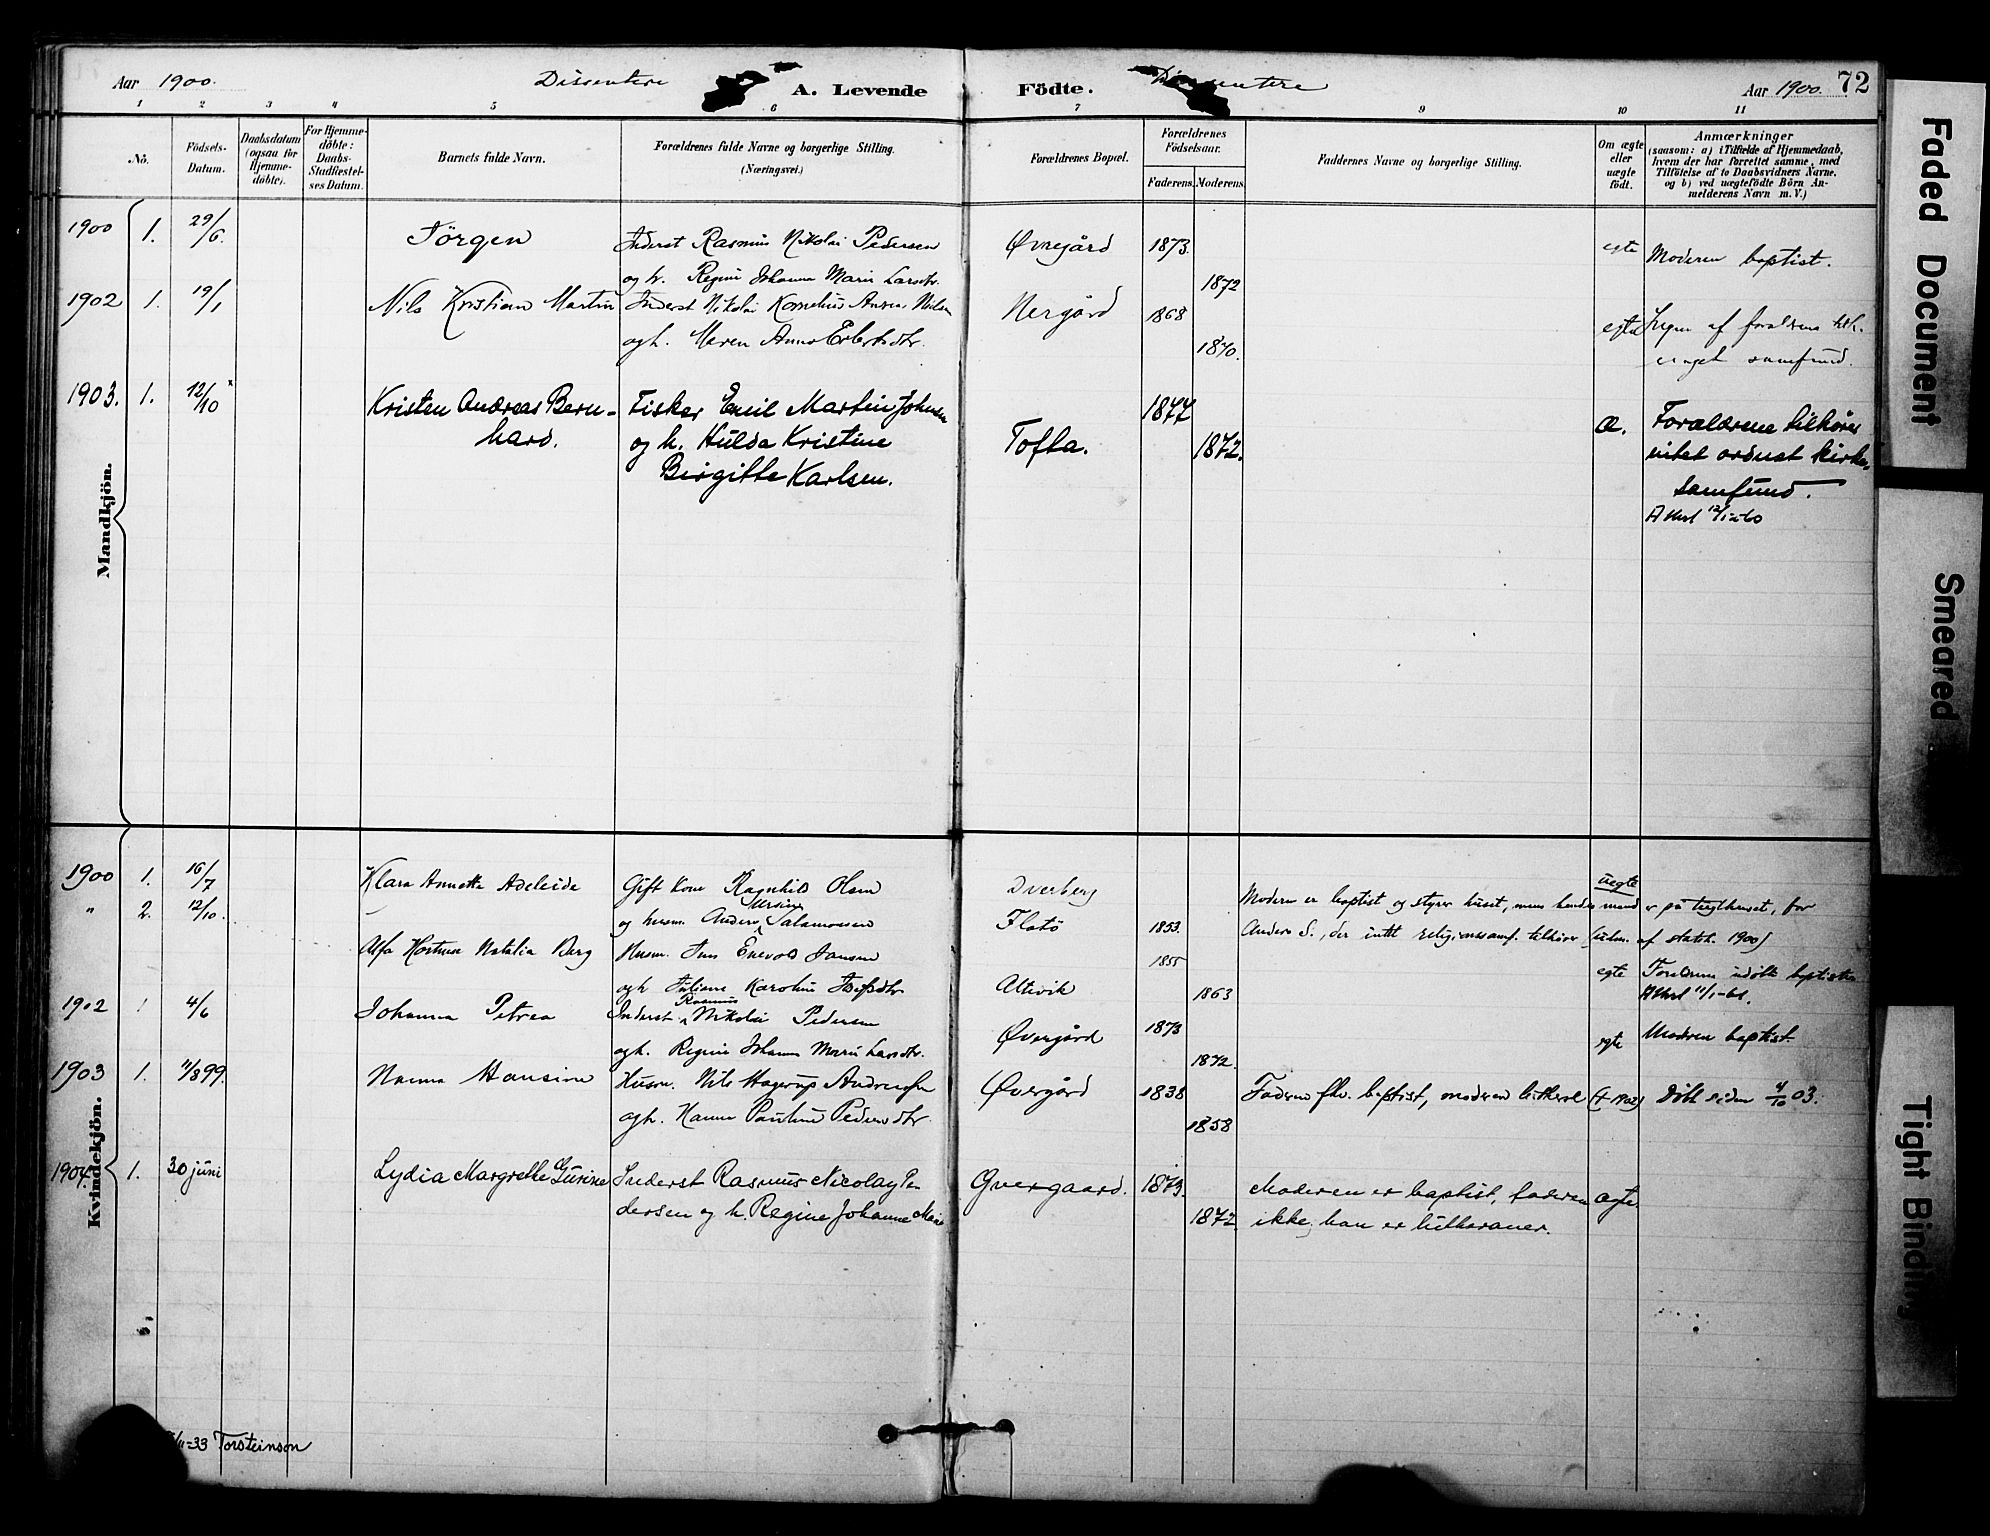 Aar 1900.
Dissentere
A. Levende Födte.
Dissentere
Aar 1900.
72
1 2 3 4 5 6 7 9 10 11
No.
Födsels-Datum.
Daabsdatum (ogsaa for Hjemme-döbte).
For Hjemme-döbte: Daabs-Stadfæstel-ses Datum.
Barnets fulde Navn.
Forældrenes fulde Navne og borgerlige Stilling.
(Næringsvei.)
Forældrenes Bopæl.
Forældrenes Födselsaar.
Faderens. Moderens.
Faddernes Navne og borgerlige Stilling.
Om ægte eller uægte födt.
Anmærkninger
(saasom: a) i Tilfælde af Hjemmedaab,
hvem der har forrettet samme, med
Tilföielse af to Daabsvidners Navne,
og b) ved uægtefödte Börn An-
melderens Navn m. V.)
Mandkjön.
1900 1. 29/6. Jörgen Inderst Rasmus Nikolai Pedersen Øvregård 1873. egte Moderen baptist.
og h. Regine Johanna Marie Larsdtr. 1872
1902 1. 19/1 Nils Kristian Martin Inderst Nikolai Kornelius Nilsen Nergård 1868 egte af forældrene
og h. Maren Anna 1870. samfund.
1903. 1. 12/10 x Kristen Andreas Bern- Fisker Emil Martin Johnsen 1877 æ. Forældrene tilhører
hard. og h. Hulda Kristine Tofta. 1872. intet ordnet kirke-
Birgitte Karlsen. samfund.
Attest 12/1-60
Kvindekjön.
1900 1. 16/7 Klara Annette Adeleide Gift kone Ragnhild Olsen Dverberg uegte
Moderen er baptist og styrer huset, mens hendes mand er på tugthuset, for
" 2. 12/10. og husm. Anders Ursin Salamonsen Flatö 1853. Anders S., der intet religionssamf. tilhører (udm. af statsk. 1900)
Alfa Hortense Natalia Berg Husm. Jens Enevold Jensen 1855 egte Forældrene udöbte baptister
og h. Juliane Karoline Altevik 1863 Attest 11/1-61.
1902 1 4/6 Johanna Petrea Inderst Rasmus Nikolai Pedersen Øvergård 1873 egte Moderen baptist
og h. Regine Johanna Marie Larsdtr. 1872.
1903 1. 11/8 99. Nanna Hansine Husm. Nils Hagerup Andreassen Øvergård 1838 Faderen fhv. baptist, moderen luthersk (+ 1902) Döbt siden 4/10 03.
og h. Hanna Pauline Pedersdtr. 1858
1904. 1. 30 juni Lydia Margrethe Gurine Inderst Rasmus Nicolay Pe- Øvergaard. 1873. Moderen er baptist, faderen ægte.
dersen og h. Regine Johanne Marie 1872. ikke, han er lutheraner.
/11-33 Torsteinson
Faded Document
Smeared
Tight Binding